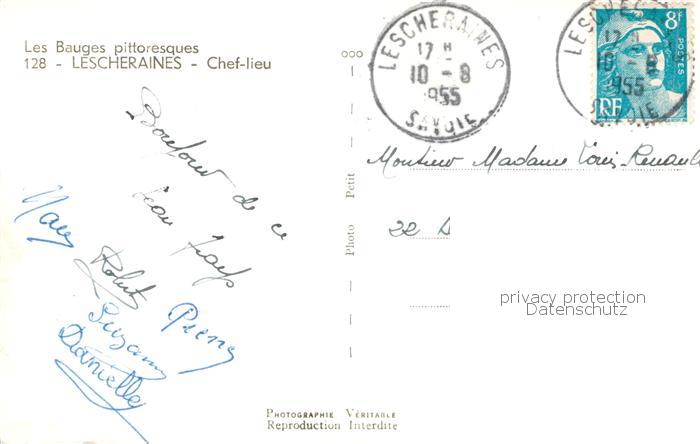 Les Bauges pittoresques
128 - LESCHERAINES - Chef-lieu
LESCHERAINES
17 H
10 - 8
1955
SAVOIE
8F
POSTES
RF
LESCHERAINES
17 H
10 - 8
1955
SAVOIE
Bonjour de ce
beau
Robert
Suzanne
Danielle
Photo Petit
Monsieur Madame Louis Renault
22
privacy protection
Datenschutz
PHOTOGRAPHIE VÉRITABLE
Reproduction Interdite